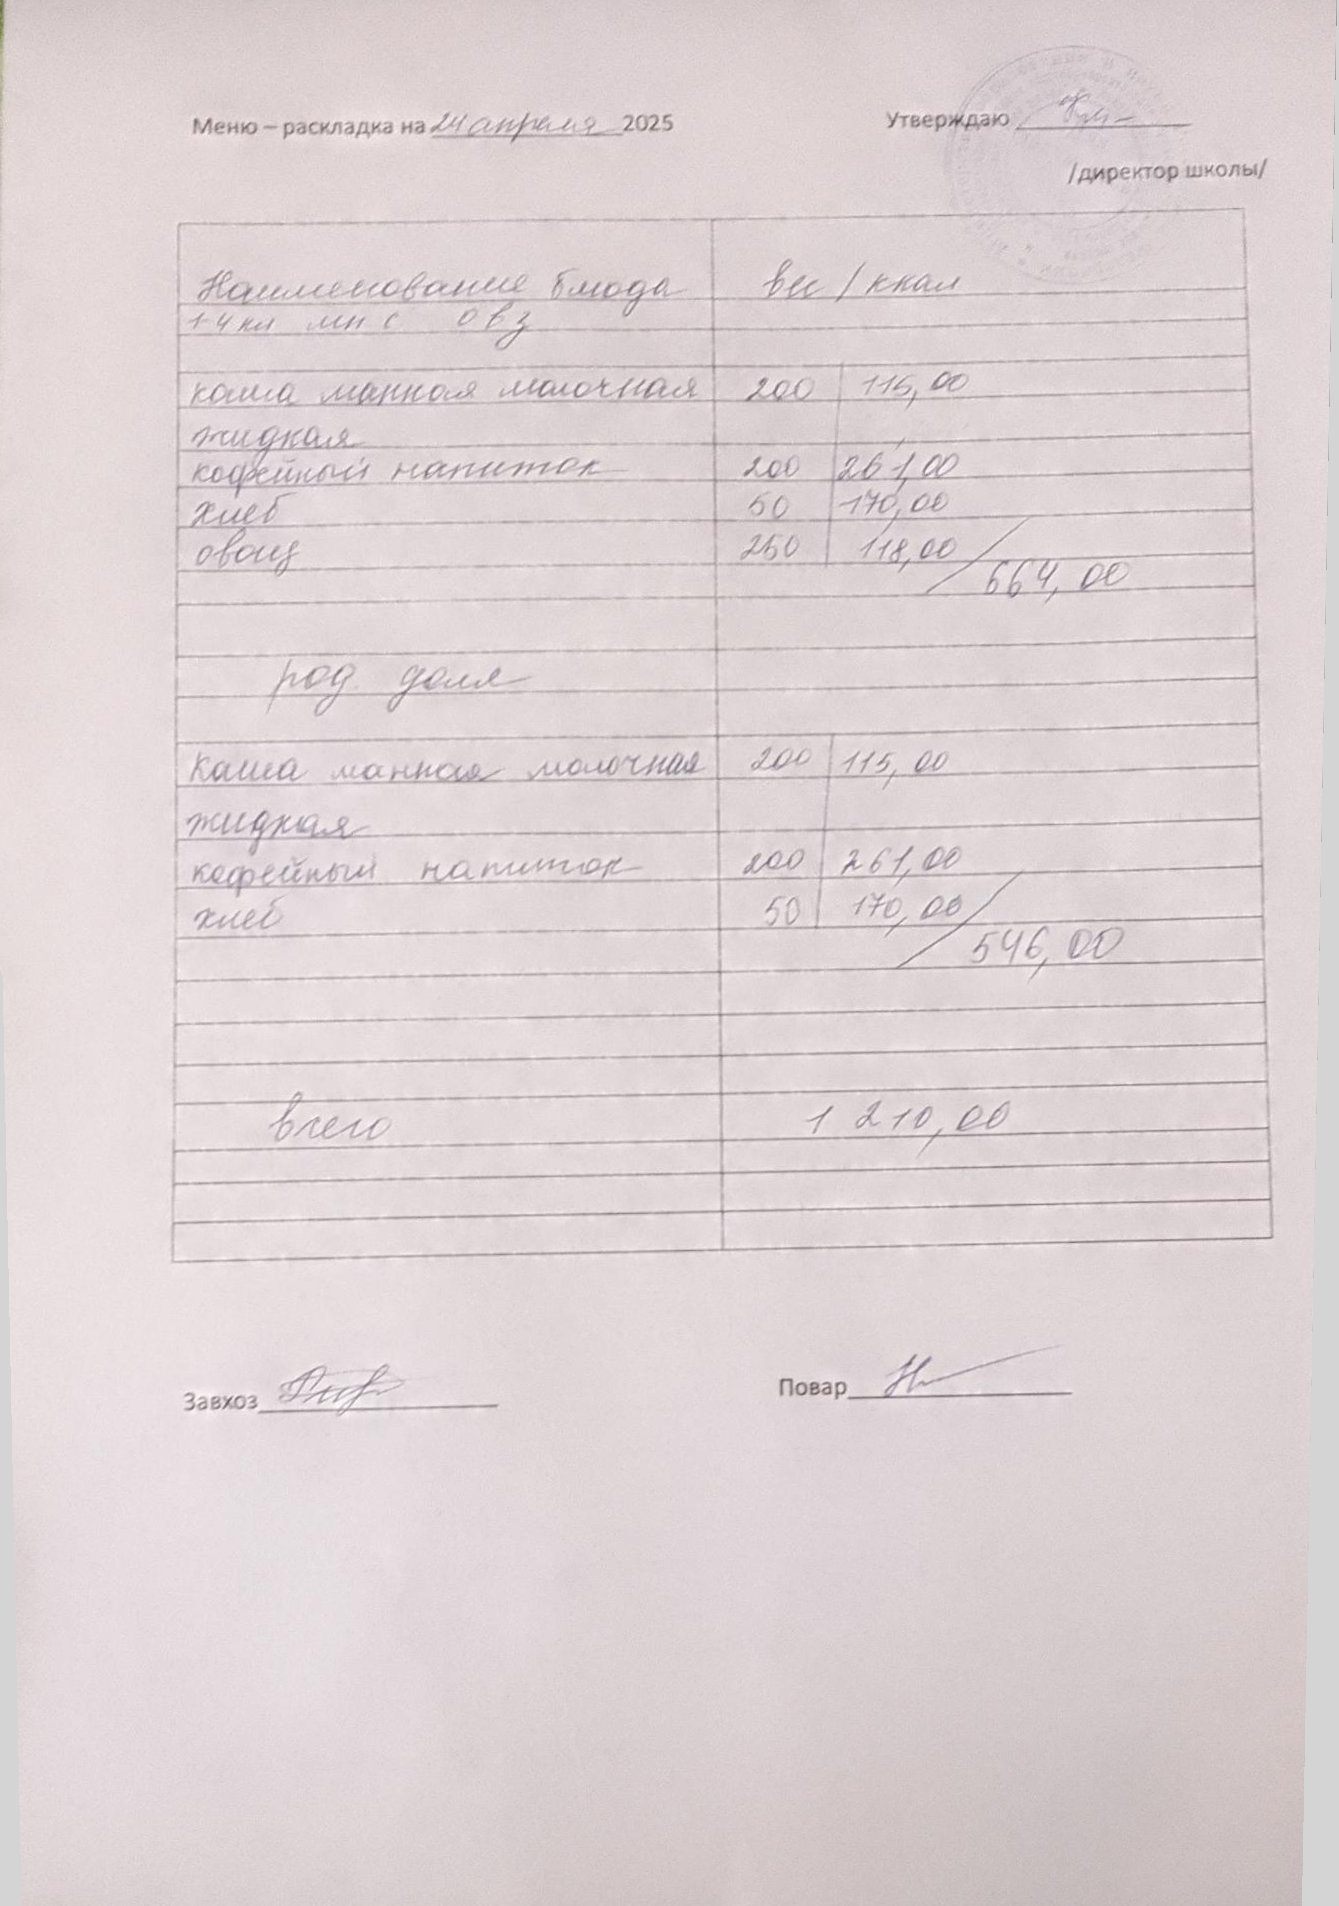 Меню – раскладка на 24 апреля 2025 Утверждаю
/директор школы/
Наименование блюда вес / ккал
1-4 кл мн с овз
каша манная молочная 200 115,00
жидкая
кофейный напиток 200 261,00
хлеб 50 170,00
овощ 250 118,00
664,00
род. доля
каша манная молочная 200 115,00
жидкая
кофейный напиток 200 261,00
хлеб 50 170,00
546,00
всего 1 210,00
Завхоз Повар